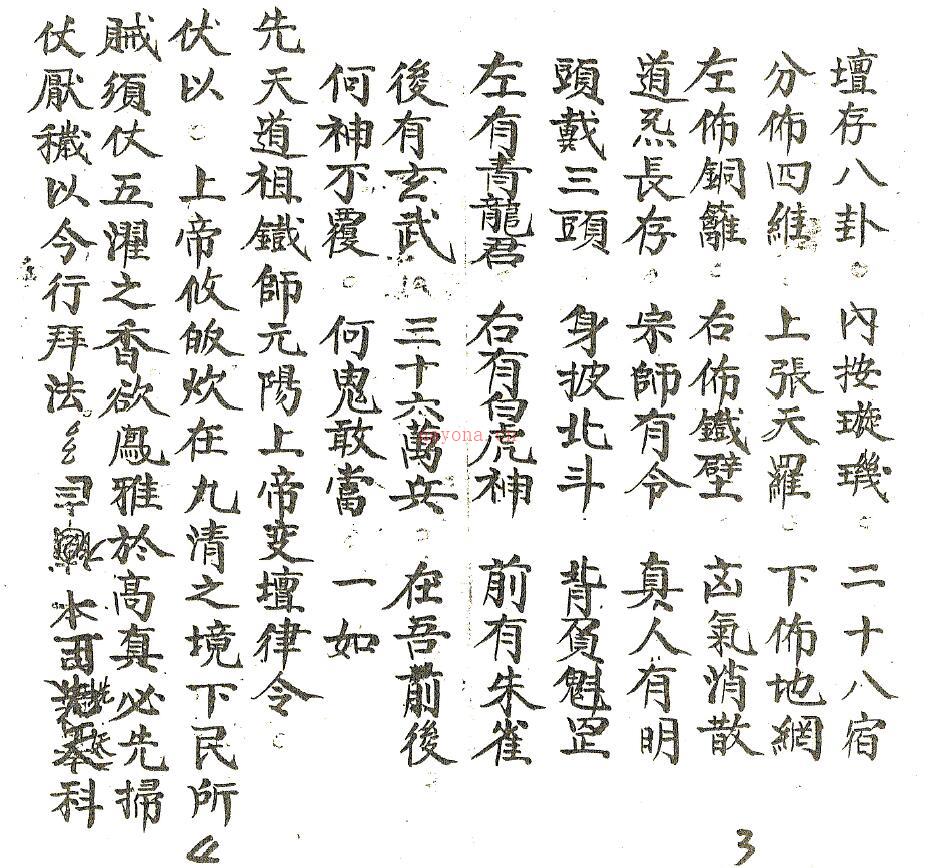 壇存八卦 內按璇璣 二十八宿
分佈四維 上張天羅 下佈地網
左佈銅籬 右佈鐵壁 凶氣消散
道炁長存 宗師有令 真人有明
頭戴三頭 身披北斗 背負魁罡
左有青龍君 右有白虎神 前有朱雀
後有玄武 三十六萬兵 在吾前後
何神不覆 何鬼敢當 一如
先天道祖鐵師元陽上帝变壇律令
伏以 上帝攸皈 在九清之境下民所
須仗五濯之香欲鳳雅於高真必先掃
仗厭穢以今行拜法 本 科
3
4